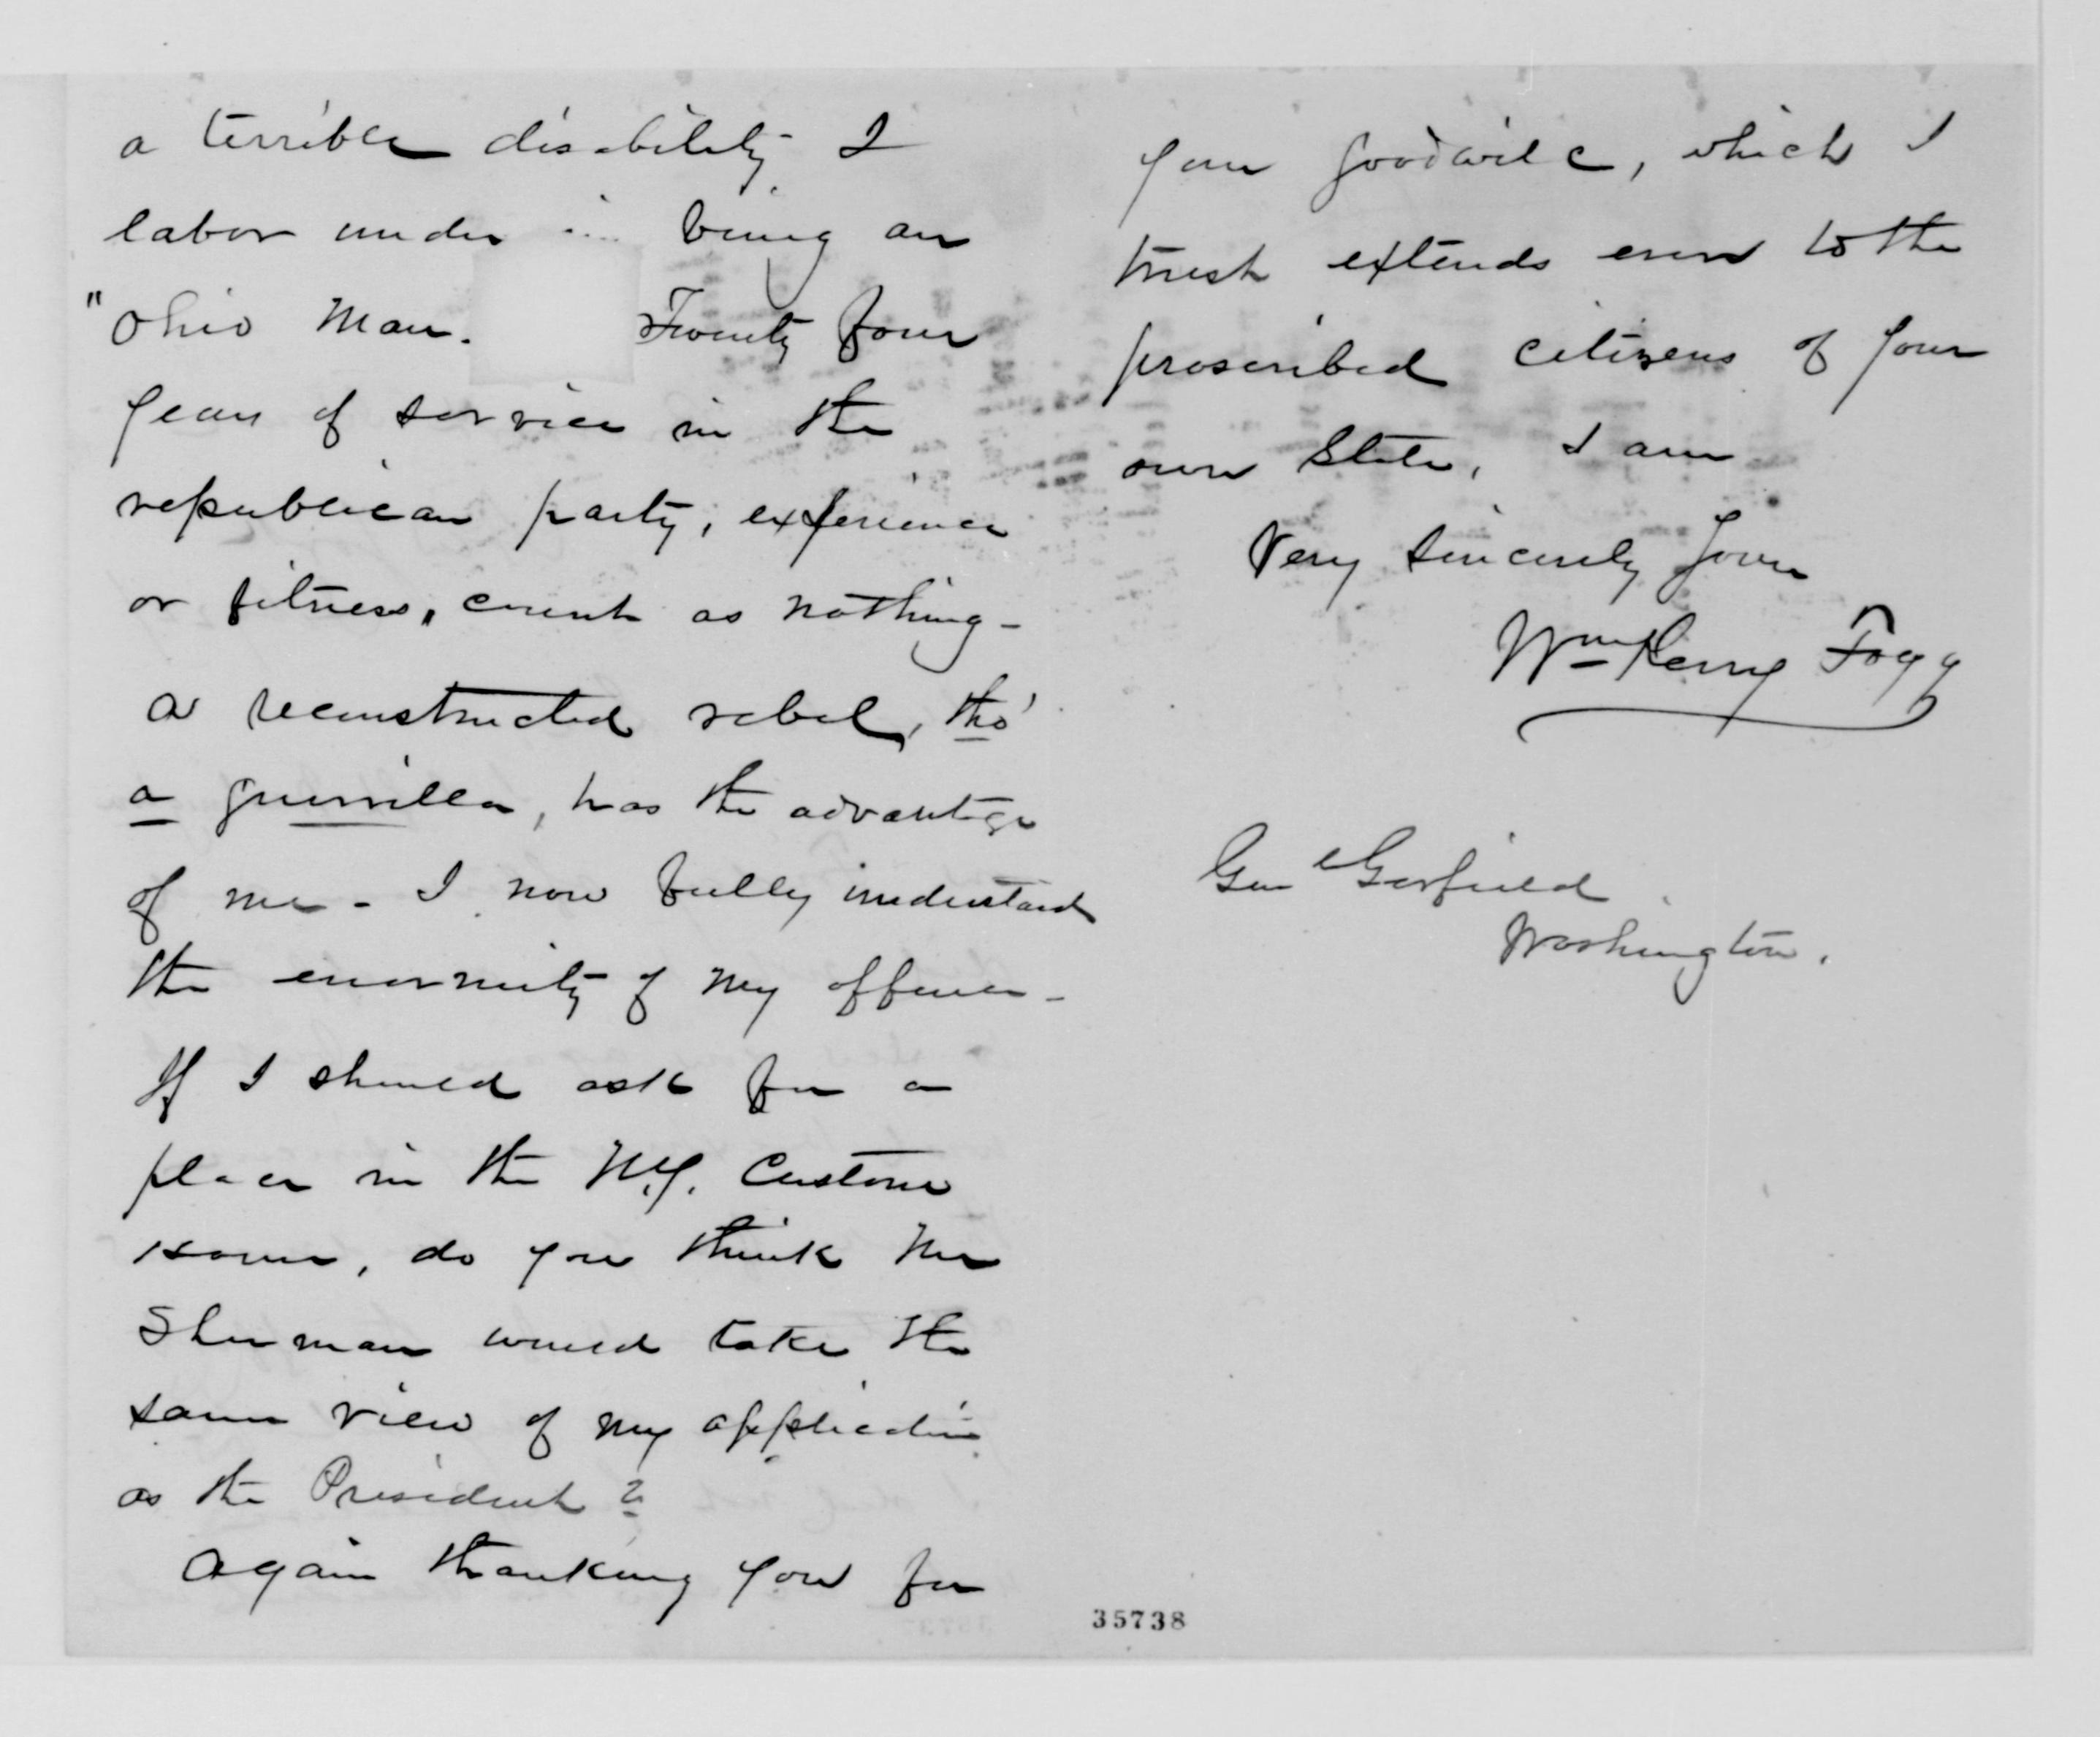 a terrible disability I
labor under in being an
"Ohio Man. Twenty four
years of service in the
republican party, experience
or fitness, count as nothing -
a reconstructed rebel, tho'
a guerrilla, has the advantage
of me - I now fully understand
the enormity of my offence -
If I should ask for a
place in the N.Y. Custom
House, do you think Mr
Sherman would take the
same view of my application
as the President?
Again thanking you for
your goodwill, which I
trust extends even to the
proscribed citizens of your
own State, I am
Very Sincerely Yours
Wm Perry Fogg
Gen Garfield
Washington.
35738